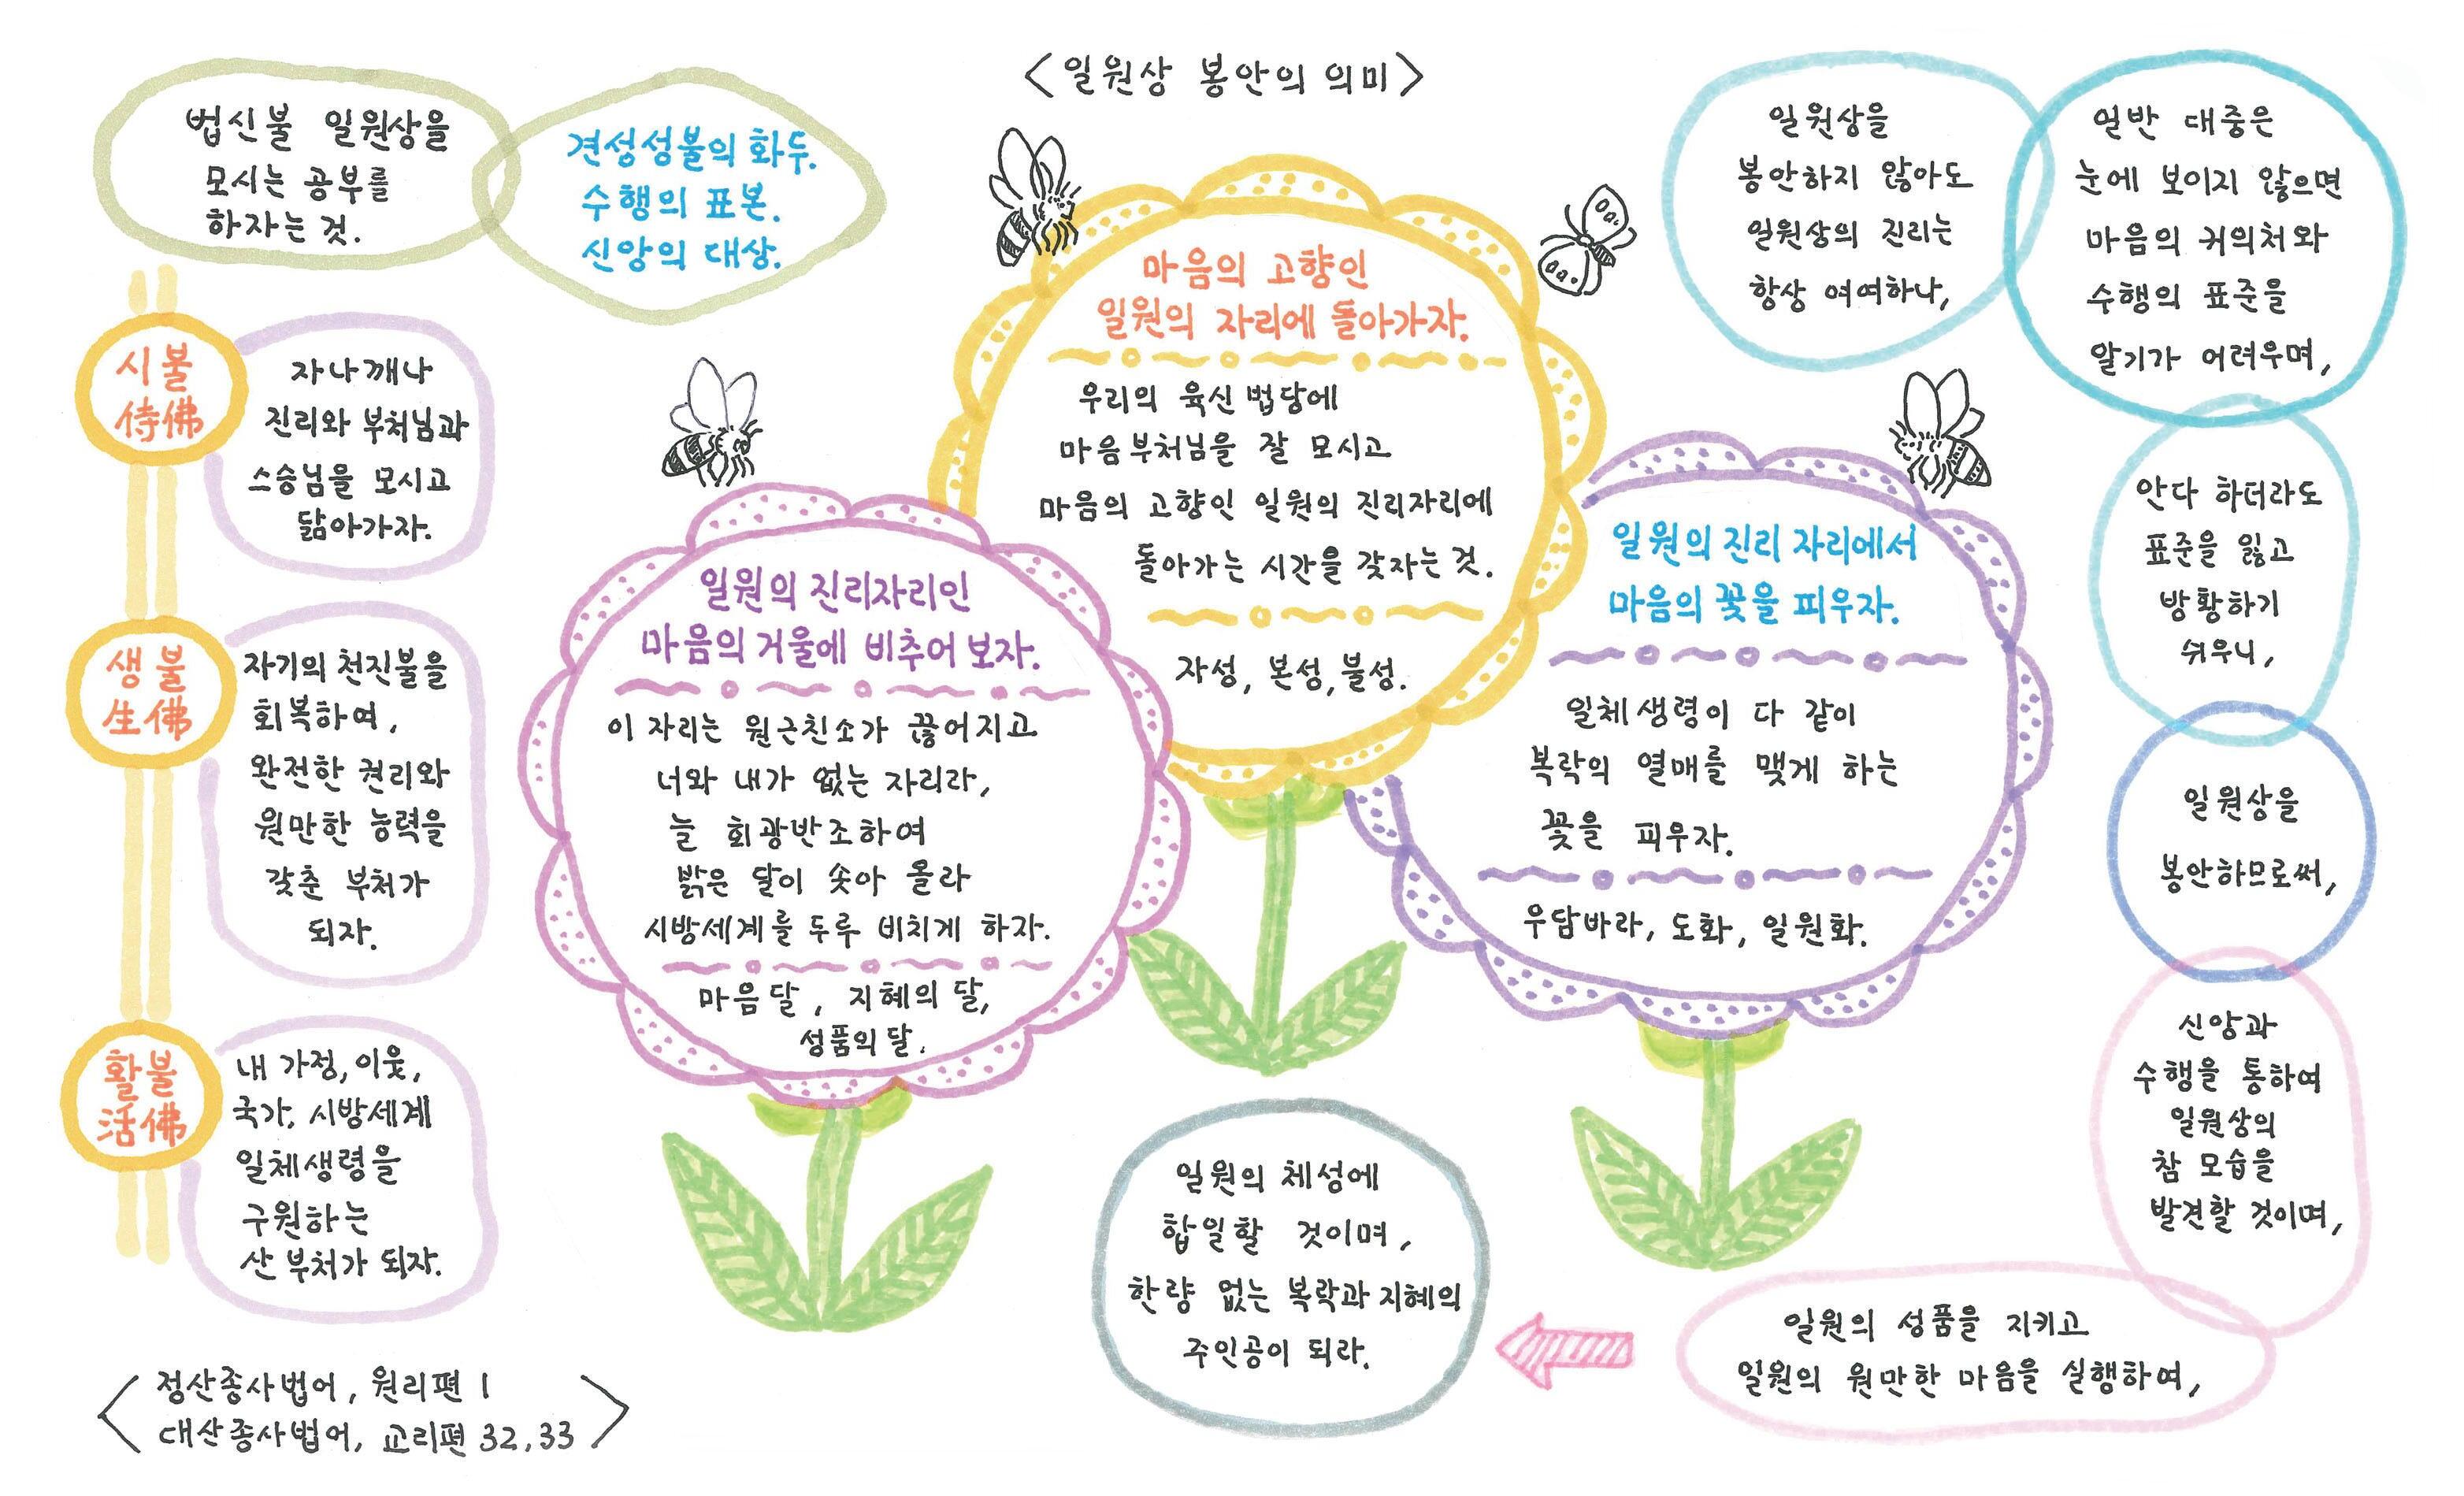 <일원상 봉안의 의미>
법신불 일원상을
모시는 공부를
하자는 것.
견성성불의 화두.
수행의 표본.
신앙의 대상.
시불
侍佛
자나깨나
진리와 부처님과
스승님을 모시고
닮아가자.
생불
生佛
자기의 천진불을
회복하여,
완전한 권리와
원만한 능력을
갖춘 부처가
되자.
활불
活佛
내 가정, 이웃,
국가, 시방세계
일체생령을
구원하는
산 부처가 되자.
<정산종사법어, 원리편 1
대산종사법어, 교리편 32,33>
일원의 진리자리인
마음의 거울에 비추어 보자.
이 자리는 원근친소가 끊어지고
너와 내가 없는 자리라,
늘 회광반조하여
밝은 달이 솟아 올라
시방세계를 두루 비치게 하자.
마음달, 지혜의 달,
성품의 달.
마음의 고향인
일원의 자리에 돌아가자.
우리의 육신 법당에
마음부처님을 잘 모시고
마음의 고향인 일원의 진리자리에
돌아가는 시간을 갖자는 것.
자성, 본성, 불성.
일원의 진리 자리에서
마음의 꽃을 피우자.
일체생령이 다 같이
복락의 열매를 맺게 하는
꽃을 피우자.
우담바라, 도화, 일원화.
일원상을
봉안하지 않아도
일원상의 진리는
항상 여여하나,
일반 대중은
눈에 보이지 않으면
마음의 귀의처와
수행의 표준을
알기가 어려우며,
안다 하더라도
표준을 잃고
방황하기
쉬우니,
일원상을
봉안하므로써,
신앙과
수행을 통하여
일원상의
참 모습을
발견할 것이며,
일원의 성품을 지키고
일원의 원만한 마음을 실행하여,
일원의 체성에
합일할 것이며,
한량 없는 복락과 지혜의
주인공이 되라.